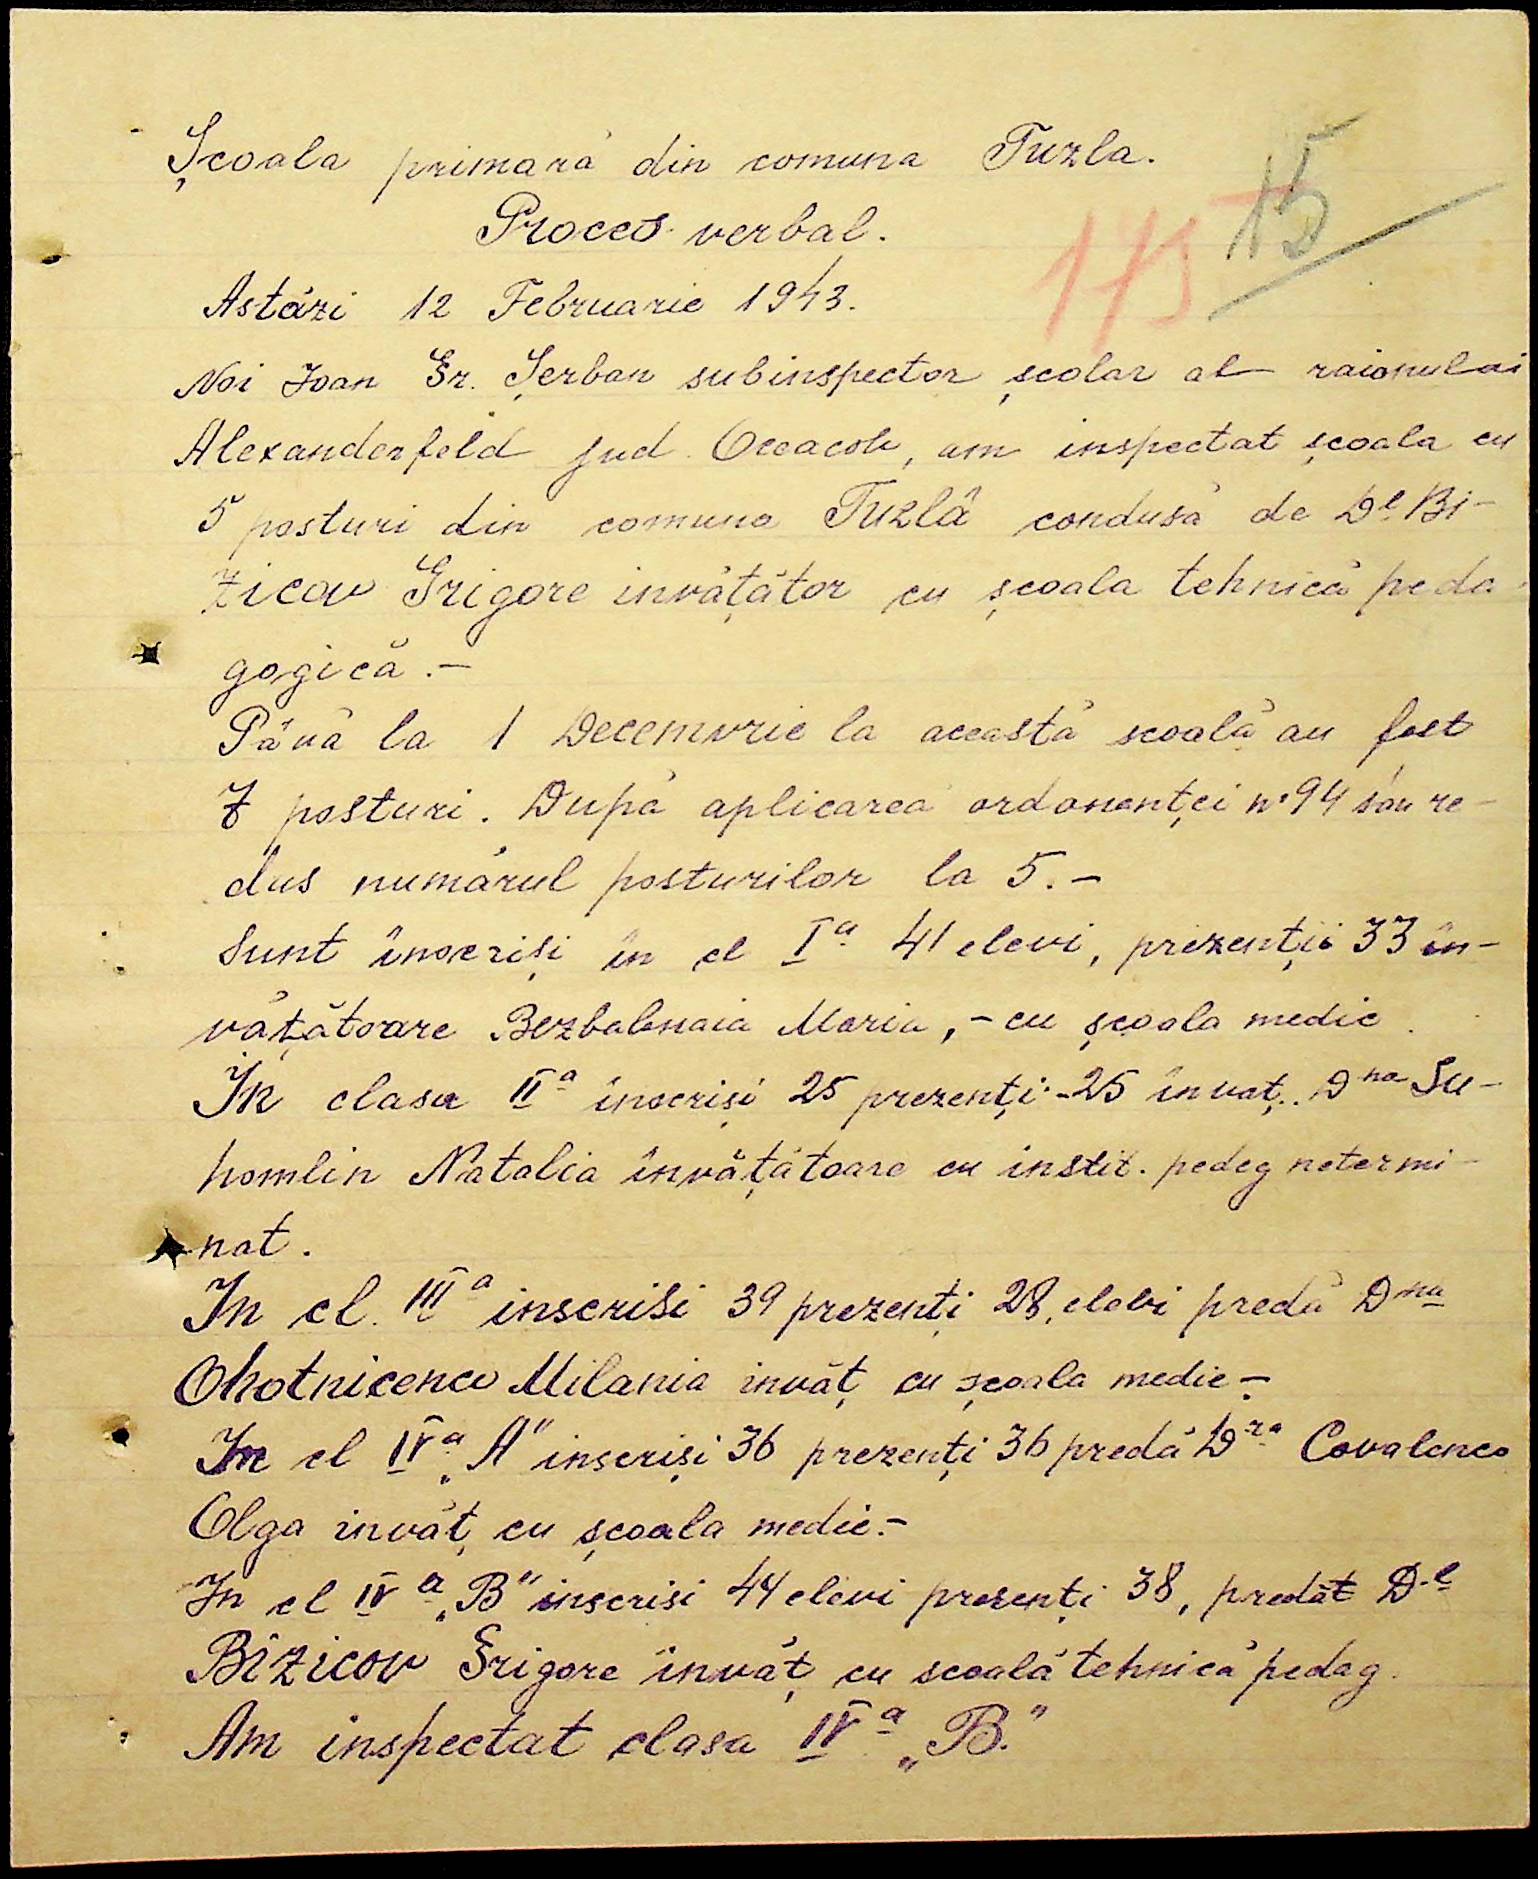 Școala primară din comuna Tuzla.
15
175
Proces verbal.
Astăzi 12 Februarie 1943.
Noi Ioan Gr. Șerban subinspector școlar al raionului
Alexanderfeld jud. Oceacov, am inspectat școala cu
5 posturi din comuna Tuzlă condusă de Dl Bi-
zicov Grigore invățător cu școala tehnică peda-
gogică.-
Până la 1 Decemvrie la această scoală au fost
7 posturi. După aplicarea ordonenței no 94 s'au re-
dus numărul posturilor la 5.-
Sunt înscriși în cl Ia 41 elevi, prezenții 33 în-
vățătoare Bezbalonaia Maria,- cu școala medie.
In clasa IIa înscriși 25 prezenți-25 învaț. Dna Su-
homlin Natalia învățătoare cu instit. pedeg netermi-
nat.
In cl. IIIa inscrisi 39 prezenți 28, elevi predă Dna
Ohotnicenco Milania invăț cu școala medie-
In cl IVa „A" inscriși 36 prezenți 36 predă Dra Covalenco
Olga invăț cu școala medie.-
In cl IVa „B" inscrisi 44 elevi prezenți 38, predăt D-l
Bîzicov Grigore învăț cu scoală tehnică pedag.
Am inspectat clasa IVa „B."